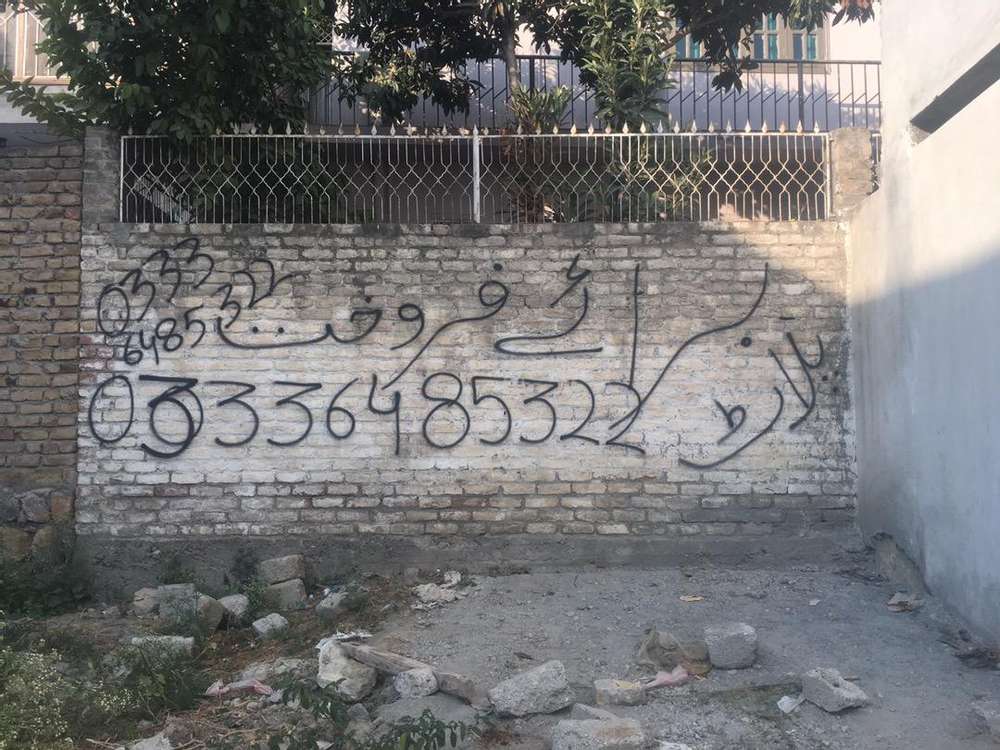 پلاٹ برائے فروخت
0333
6485322
03336485322